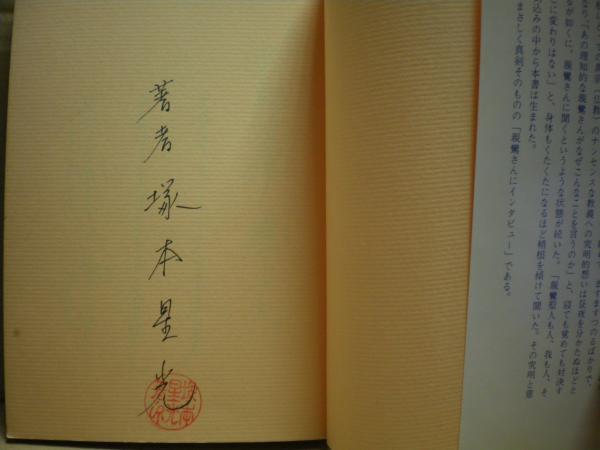 なり、「あの理知的な親鸞さんがなぜこんなことを言うのか」と、寝ても覚めても対決す
るが如くに、親鸞さんに聞くというような状態が続いた。「親鸞聖人も人、我も人、そ
こに変わりはない」と、身体もくたくたになるほど精根を傾けて聞いた。その究明と意
込みの中から本書は生まれた。
まさしく真剣そのものの「親鸞さんにインタビュー」である。
著者 塚本星光